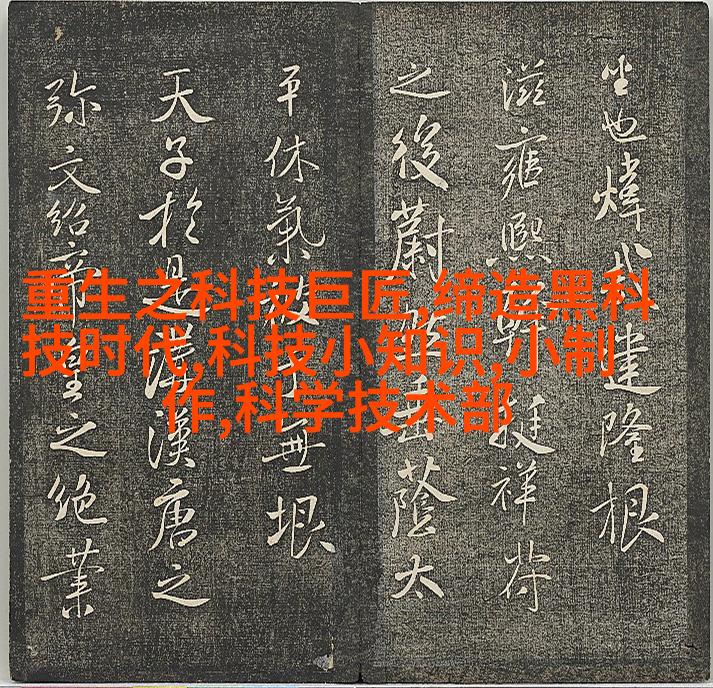 重生之科技巨匠,缔造黑科
技时代,科技小知识,小制
作,科学技术部
也煒建隆根
滋雍熙挺祥符
之後蔚蔭太
平休氣無垠
天子於是漢唐之
弥文紹帝皇之絶業